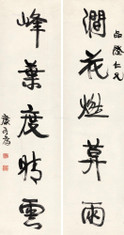 仁兄
澗花燃暮雨
峰葉度晴雲
康有為